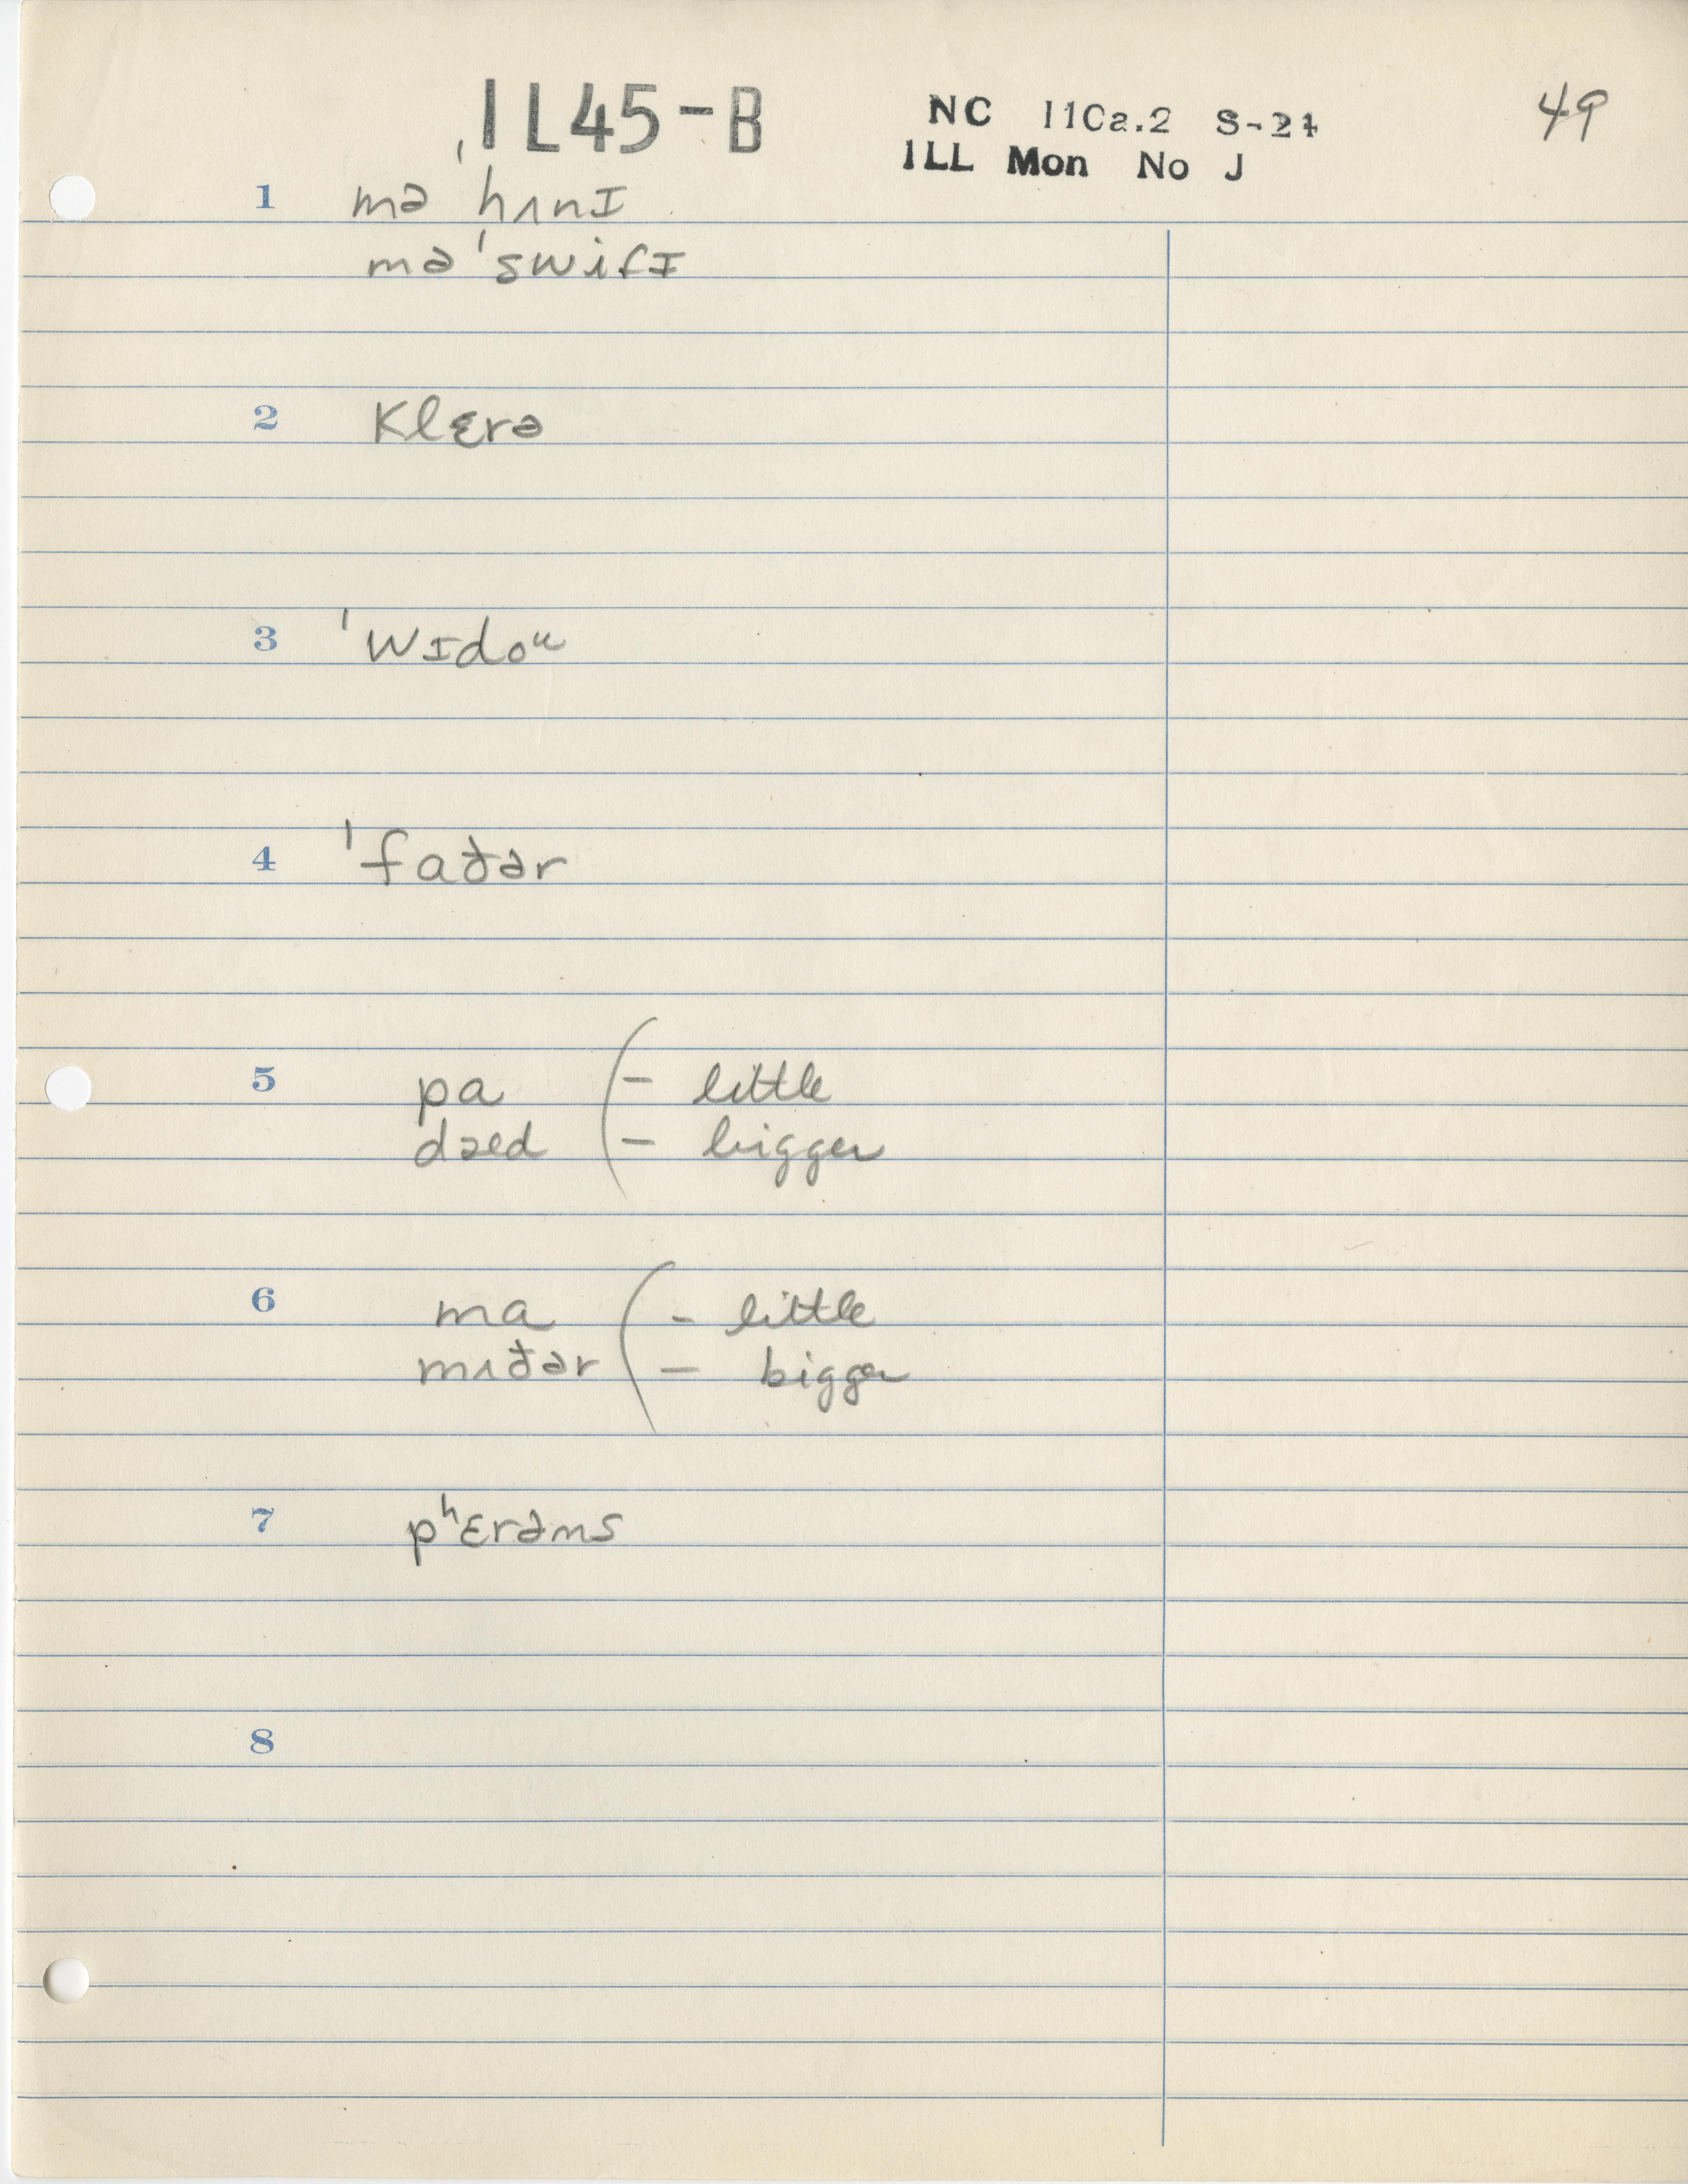 IL45-B
NC 110a.2 S-24
ILL Mon No J
49
1 mə ˈhʌnI
mə ˈswifI
2 Klɛrə
3 ˈwIdoᵘ
4 ˈfaðər
5 pa (- little
dæd (- bigger
6 ma (- little
mʌðər (- bigger
7 pʰɛrəms
8